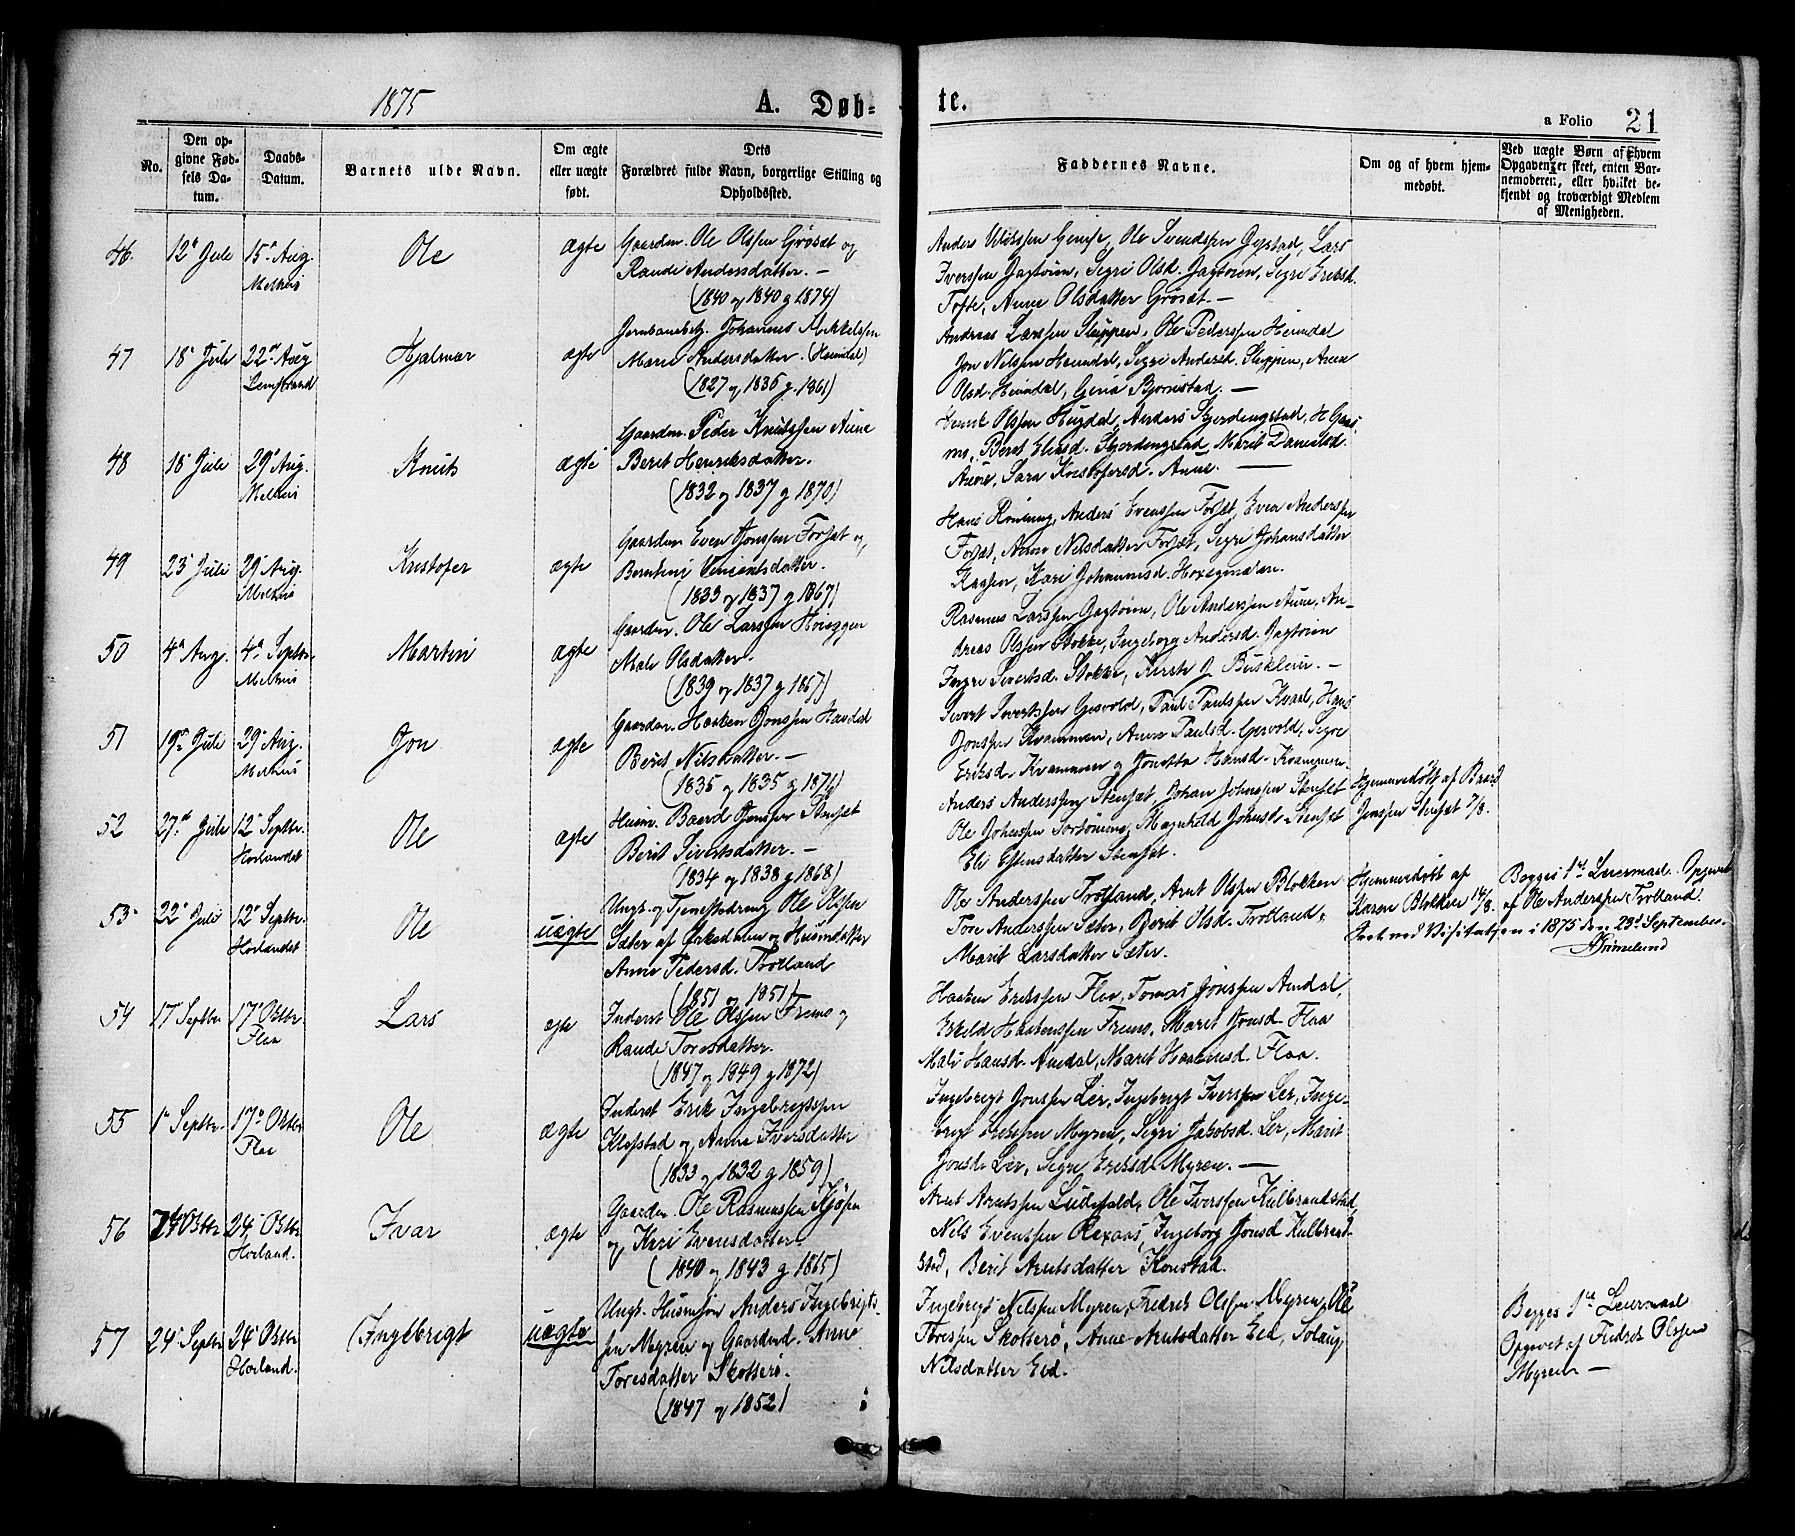 1875
A. Døb-
te.
a Folio 21
No.
Den op-
givne Fød-
sels Da-
tum.
Daabs-
Datum.
Barnets fulde Navn.
Om ægte
eller uægte
født.
Dets
Forældres fulde Navn, borgerlige Stilling og
Opholdssted.
Faddernes Navne.
Om og af hvem hjem-
medøbt.
Ved uægte Børn af hvem
Opgaven er skeet, enten Bar-
nemoderen, eller hvilket be-
kjendt og troværdigt Medlem
af Menigheden.
46 12te Juli 15de Aug. Melhus Ole ægte
Gaardm. Ole Olssen Grøsæt og
Rande Andersdatter. —
(1840 og 1840 g 1874)
Anders Olssen Ole Svendssen Gystad, Lars
Iverssen Jagtøien, Segri Olsd. Jagtøien, Segri Eriksd.
Tofte, Anne Olsdatter Grøsæt. —
47 18 Juli 22de Aug Hjalmar ægte
Jernbanebetj. Johannes Mikkelsen
Maren Andersdatter. (Heimdal)
(1827 og 1836 g. 1861)
Andreas Larssen Sluppen, Ole Pederssen Heimdal
Jon Nilssen Heimdal, Segri Andersd. Sluppen, Anne
Olsd. Heimdal, Gjena Bjørnstad. —
48 18 Juli 29de Aug. Melhus Knut ægte
Gaardm. Peder Knutssen Aune
Berit Henriksdatter.
(1832 og 1837 g 1870)
Olssen Hugdal, Anders Skjerdingstad, H
Beret Skjerdingstad, Marit Danielsd.
Aune, Sara Kristofersd. Aune. —
49 23 Juli 29 Aug. Melhus Kristofer ægte
Gaardm Even Jonssen Forsæt og
(1833 og 1837 g 1867)
Hans Rønning, Anders Evenssen Forsæt, Even Anderssen
Forsæt, Anne Nilsdatter Forsæt, Segri Johansdatter
Kari Johannesd.
50 4de Aug. 4de Septbr. Melhus Martin ægte
Gaardm. Ole Larssen
Male Olsdatter.
(1839 og 1837 g 1867)
Rasmus Larssen Jagtøien, Ole Anderssen Aune, An-
dreas Olssen Stokke, Ingeborg Andersd. Jagtøien
Sivertsd. Stokke, —
51 19de Juli 29 Aug. Melhus Jon ægte
Gaardm. Haaken Jonssen
Berit Nilsdatter. —
Sivert Sivertssen Gisvold, Paul Paulssen Kvaal, Hans
Jonssen Kvammen, Anne Paulsd. Gisvold,
Eriksd. Kvammen og Jonetta Hansd. Kvammen
52 27de Juli 12te Septbr. Horlandet Ole ægte
Husm. Baard Jonssen Stensæt
Berit Sivertsdatter. —
(1834 og 1838 g 1868)
Anders Anderssen Stensæt, Johan Johnssen Stensæt
Ole Johnssen Johnsd. Stensæt
Eli Estensdatter Stensæt.
Hjemmedøbt af Baard
Jonssen Stensæt 7/8.
53 22de Juli 12te Septbr. Horlandet Ole uægte
Ungk. og Tjenestedreng Ole Olssen
Sæter af og Husmdatter
Anne Pedersd. Trotland
(1851 og 1851)
Ole Anderssen Trotland, Arnt Olssen Blokken
Tore Anderssen Sæter, Berit Olsd. Trotland,
Marit Larsdatter Sæter.
Hjemmedøbt af
Karen Blokken 14/8.
Begges 1ste Leiermaal. Opgivet
af Ole Anderssen Trotland.
Seet ved Visitatsen i 1875 den 28de September.
AGrimelund
54 17 Septbr 17de Oktbr. Flaa Lars ægte
Inderst Ole Olssen Fremo og
Rande Toresdatter.
(1847 og 1849 g 1872)
Haaken Erikssen Flaa, Tomas Jonssen
Eskild Haakenssen Fremo, Marit Jonsd. Flaa
Mali Hansd. Marit Haakensd. Flaa.
55 1ste Septbr. 17de Oktbr. Flaa Ole ægte
Inderst Erik Ingebrigtssen
Klefstad og Anne Iversdatter
(1833 og 1832 g 1859)
Ingebrigt Jonssen Ler, Ingebrigt Iverssen Ler, Inge-
brigt Erikssen Myren, Segri Jakobsd. Ler, Marit
Jonsd. Ler, Eriksd. Myren. —
56 24de Oktbr. Horland. Ivar ægte
Gaardm. Ole Rasmussen
og Kari Evensdatter
(1840 og 1843 g 1865)
Arnt Arntssen Ole Iverssen Kulbrandstad,
Nils Evenssen Ingeborg Jonsd Kulbrand-
stad, Berit Arntsdatter Konstad.
57 24de Septbr 24de Oktbr Horland. Ingebrigt uægte
Ungk. Husmsøn Anders Ingebrigts-
sen Myren og Gaardmd. Anne
Toresdatter Skotterø.
(1847 og 1852)
Ingebrigt Nilssen Myren, Fredrik Olssen Myren, Ole
Toressen Skotterø, Anne Arntsdatter Eid, Solaug
Nilsdatter Eid.
Begges 1ste Leiermaal
Opgivet af Fredrik Olssen
Myren —